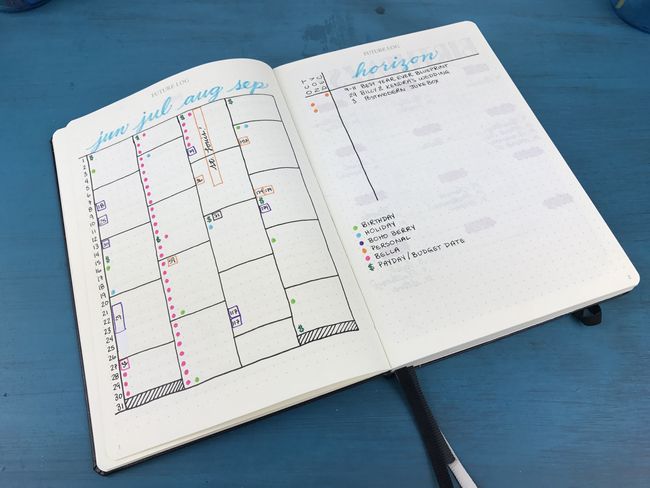 FUTURE LOG
jun jul aug sep
1
2
3
4
5
6
7
8
9
10
11
12
13
14
15
16
17
18
19
20
21
22
23
24
25
26
27
28
29
30
31
St. Louis
FUTURE LOG
horizon
OCT
NOV
DEC
9-11 BEST YEAR EVER BLUEPRINT
29 BILLY & KENDRA'S WEDDING
3 POSTMODERN JUKEBOX
BIRTHDAY
HOLIDAY
BOHO BERRY
PERSONAL
BELLA
$ PAYDAY/BUDGET DATE